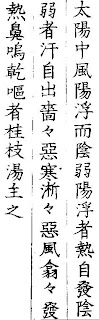 太陽中風陽浮而陰弱陽浮者熱自發陰
弱者汗自出嗇々惡寒淅々惡風翕々發
熱鼻鳴乾嘔者桂枝湯主之